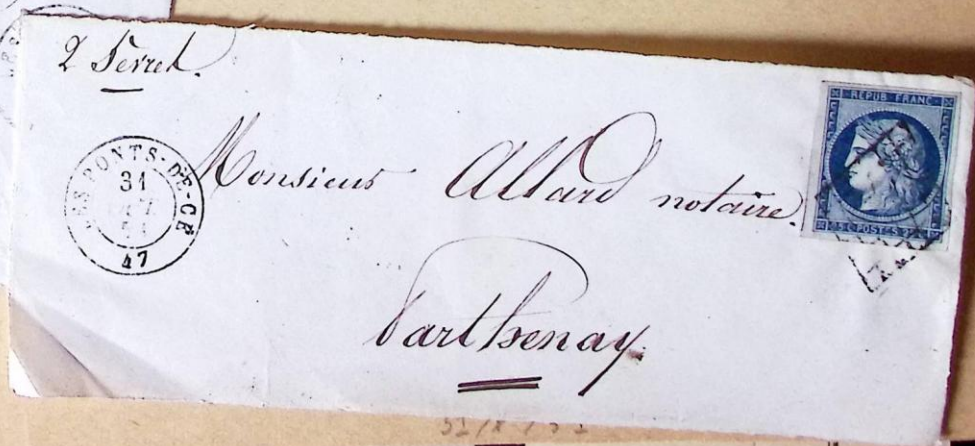 2 Févret.
LES PONTS-DE-CÉ
31
51
47
REPUB FRANC
25 C POSTES 25
Monsieur Allard notaire
Parthenay.